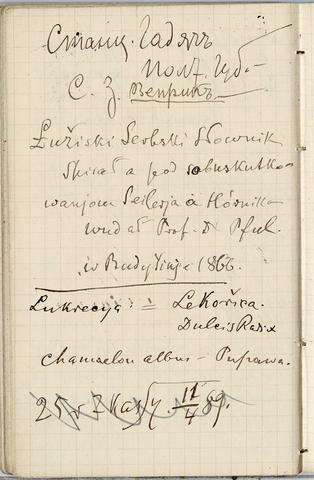 Станц. Гадячъ
Полт. Губ.
С. З. Веприкъ
Łužiski Serbski Słownik
Spisał a pod sobuskutko-
wanjom Seilerja a Hórnika
wudał Prof. D Pful.
w Budyšinje 1866.
Lukrecyja: = Lekořica.
Dulcis Radix
Chamaeleon albus – Pupawa.
11/4 89.